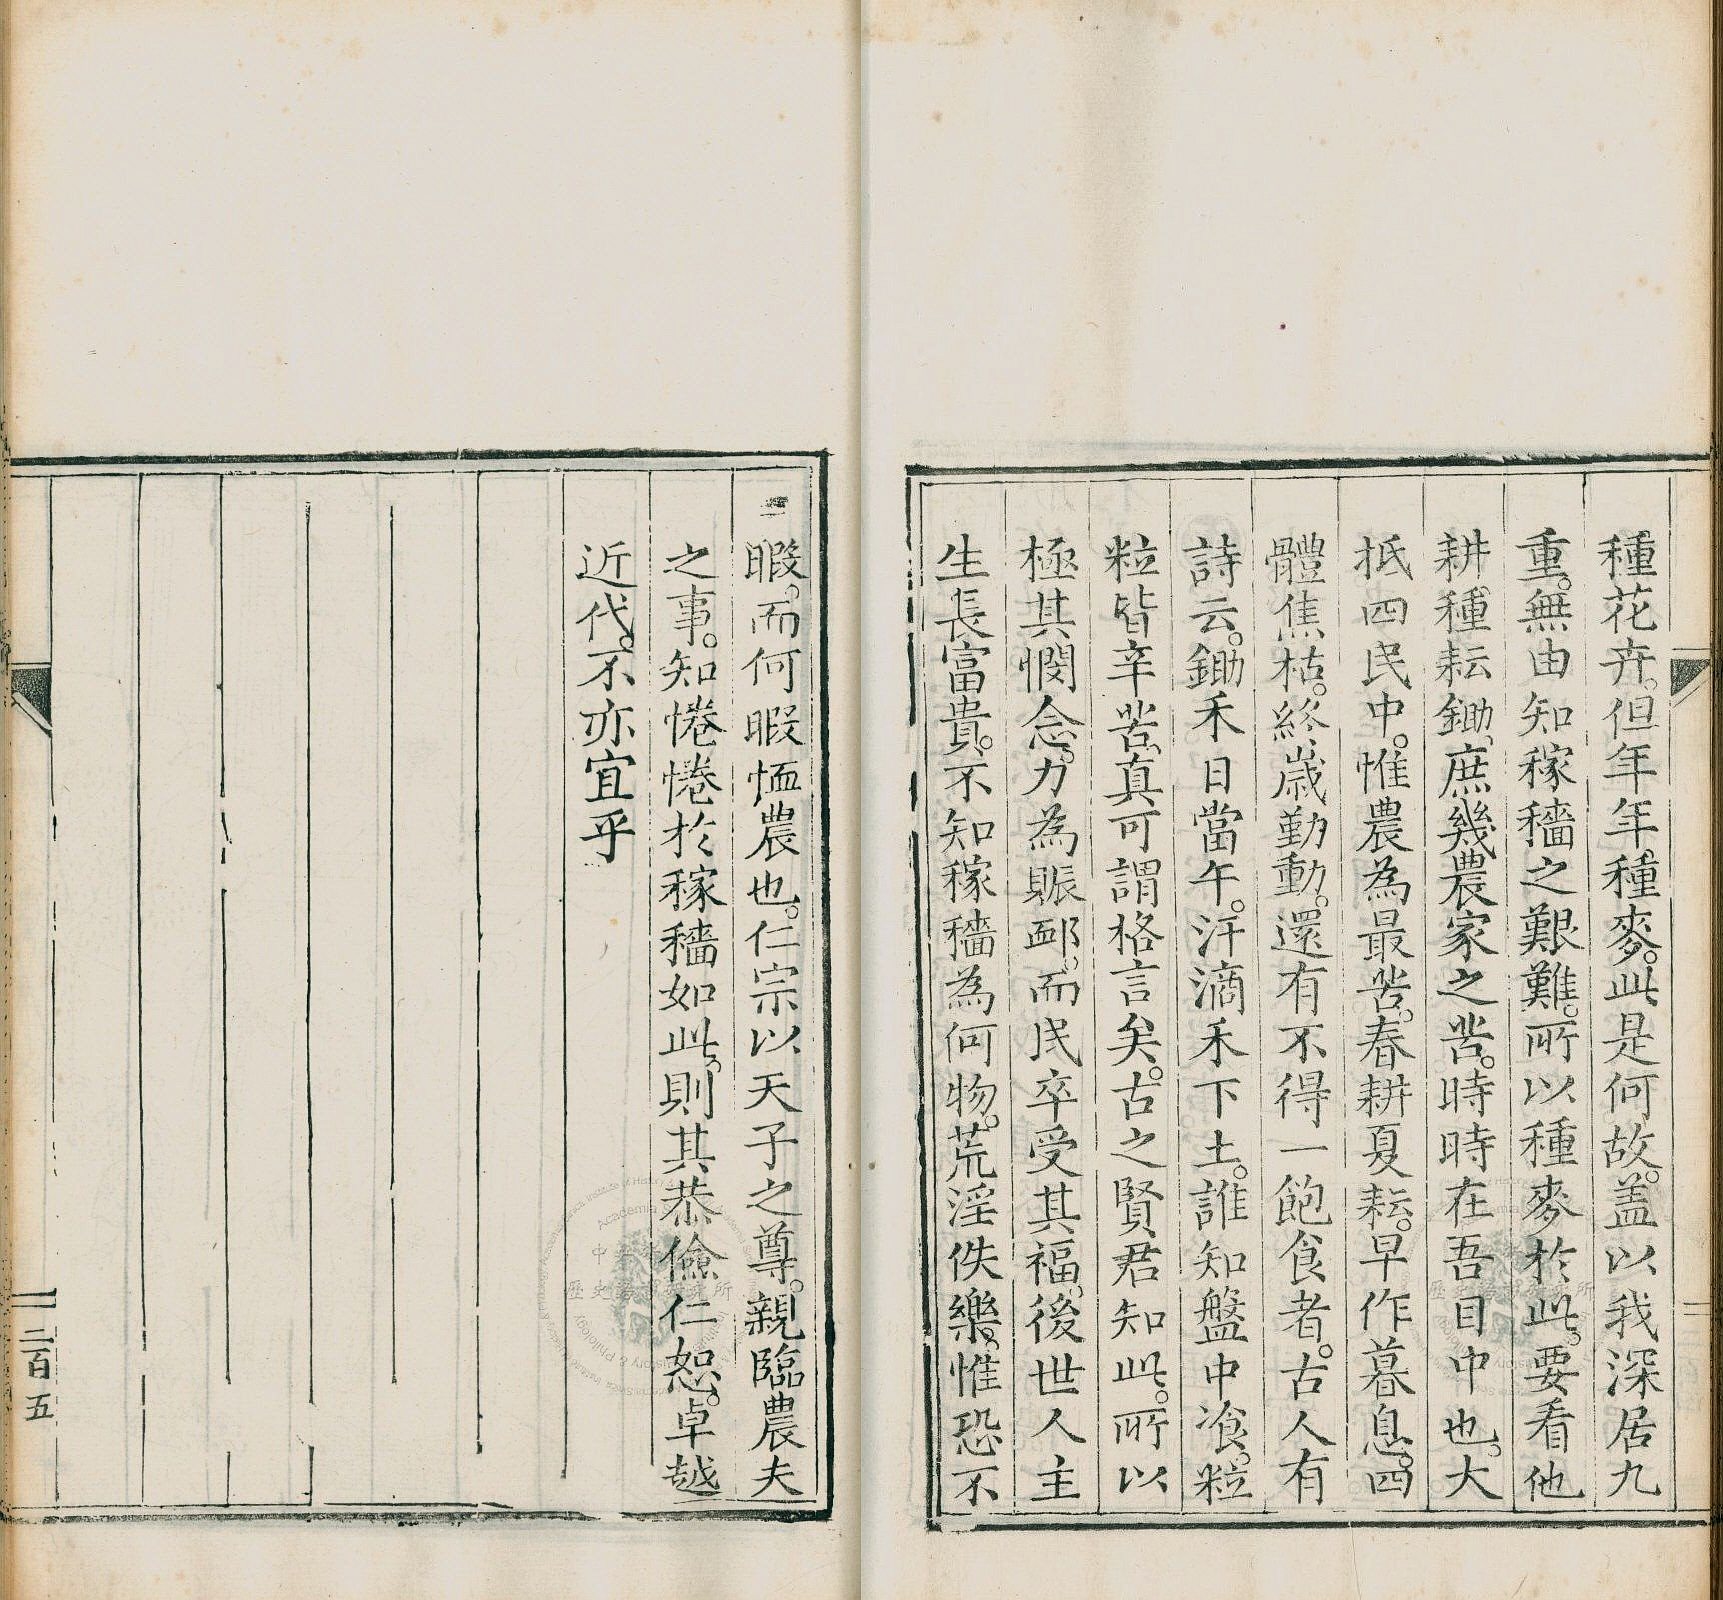 種花卉。但年年種麥。此是何故。盖以我深居九
重。無由知稼穡之艱難。所以種麥於此。要看他
耕種耘鋤。庶幾農家之苦。時時在吾目中也。大
抵四民中。惟農為最苦。春耕夏耘。早作暮息。四
體焦枯。終歲勤動。還有不得一飽食者。古人有
詩云。鋤禾日當午。汗滴禾下土。誰知盤中飡。粒
粒皆辛苦。真可謂格言矣。古之賢君知此。所以
極其憫念。力為賑䘏。而民卒受其福。後世人主
生長富貴。不知稼穡為何物。荒淫佚樂。惟恐不
暇。而何暇恤農也。仁宗以天子之尊。親臨農夫
之事。知惓惓於稼穡如此。則其恭儉仁恕。卓越
近代。不亦宜乎
二百五
中央研究院
歷史語言研究所